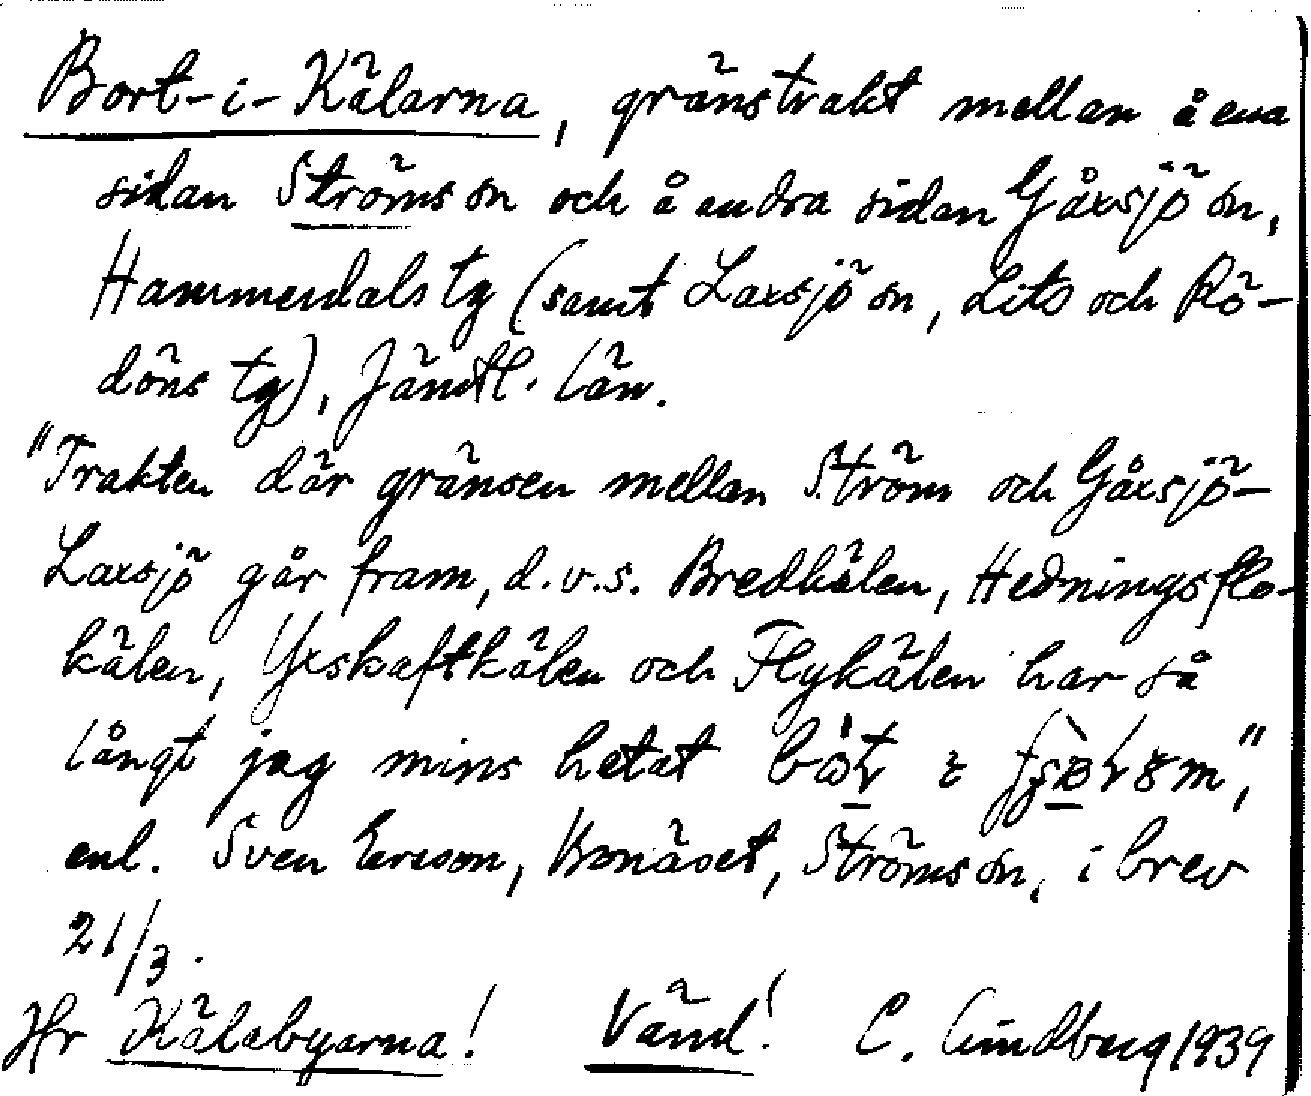 Bort-i-Kälarna, gränstrakt mellan å ena
sidan Ströms sn och å andra sidan Gåxsjö sn,
Hammerdals tg (samt Laxsjö sn, Lits och Rö-
döns tg), Jämtl. län.
"Trakten där gränsen mellan Ström och Gåxsjö-
Laxsjö går fram, d.v.s. Bredkälen, Hedningsflo-
kälen, Yxskaftkälen och Flykälen har så
långt jag mins hetat
enl. Sven Ericson, Bonäset, Ströms sn, i brev
21/3.
Jfr Kälabyarna! Vänd! C. Lindberg 1939